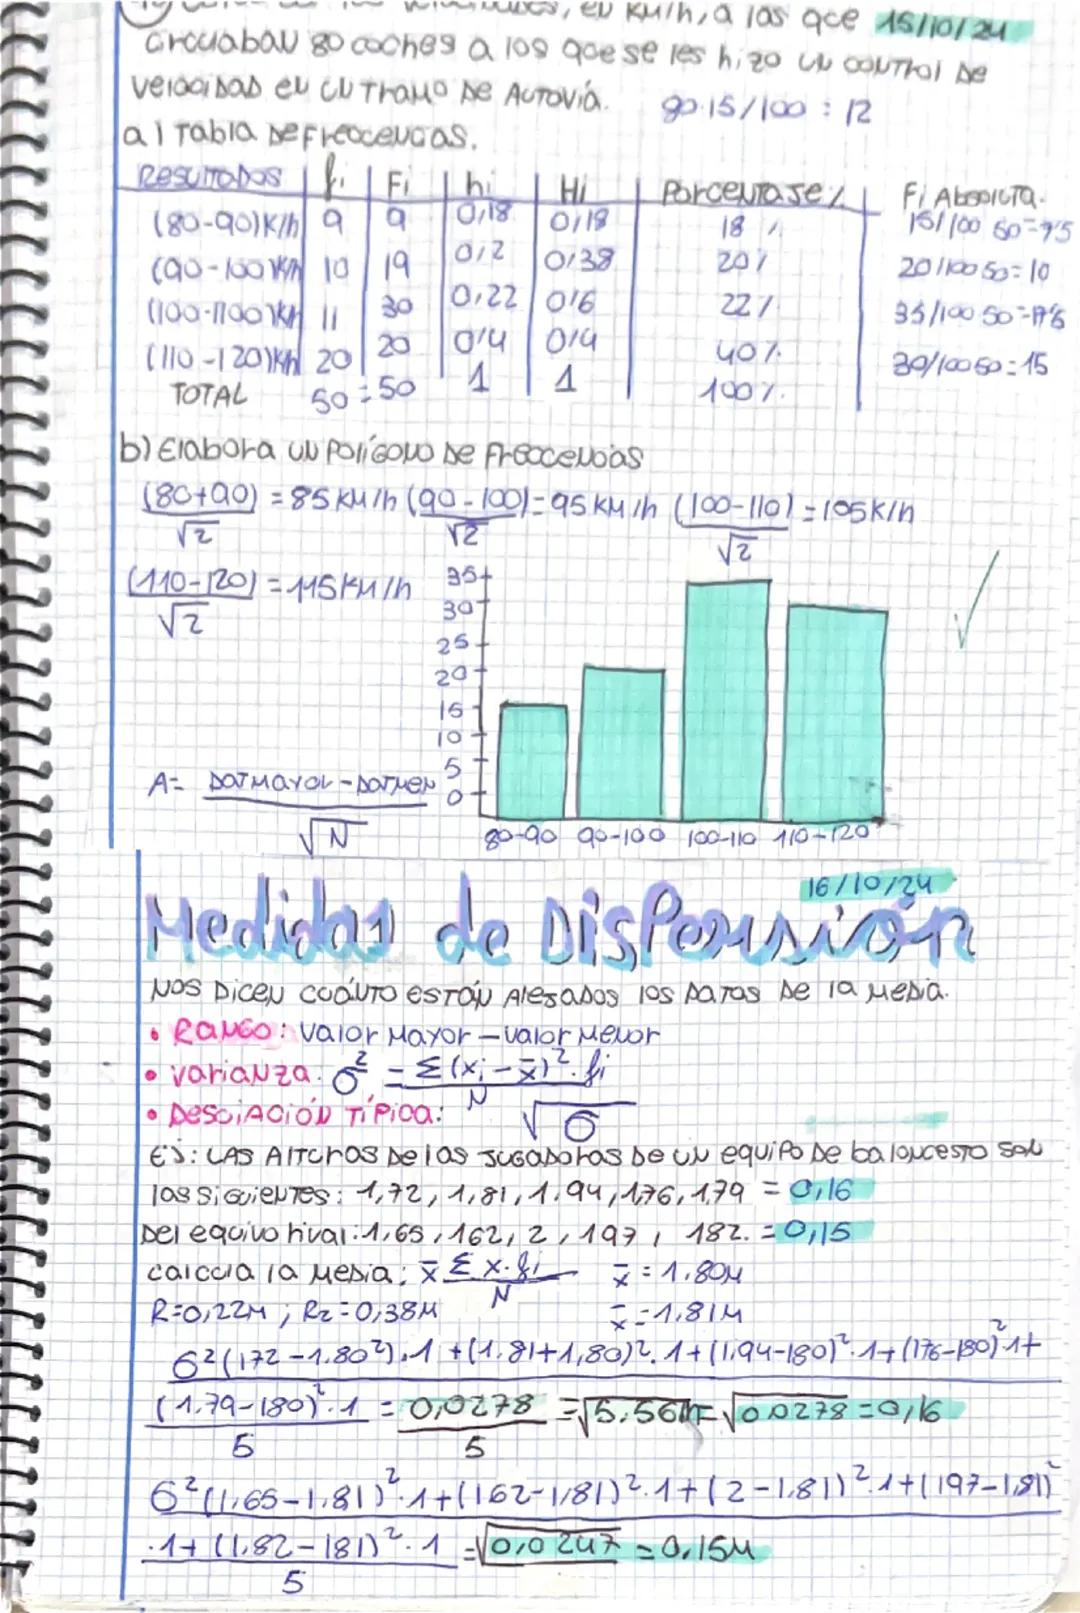 velocidades, en KM/h, a las que 15/10/24
circulaban 80 coches a los que se les hizo un control de
velocidad en un tramo de Autovía. 80·15/100 = 12
a) Tabla de Frecuencias.
Resultados fi Fi hi Hi Porcentaje % Fi Absoluta.
(80-90)K/h 9 9 0,18 0,18 18 % 15/100 50=7'5
(90-100)K/h 10 19 0,2 0,38 20% 20/100 50=10
(100-1100)K/h 11 30 0,22 0'6 22% 35/100 50=17'5
(110-120)K/h 20 20 0'4 0'4 40% 30/100 50=15
TOTAL 50=50 1 1 100%.
b) Elabora un Polígono de Frecuencias
(80+90)/√2 = 85 KM/h (90-100)/√2 = 95 KM/h (100-110)/√2 = 105K/h
(110-120)/√2 = 115KM/h
35
30
25
20
15
10
5
0
A= DatMayor-DatMen/√N
80-90 90-100 100-110 110-120
16/10/24
Medidas de Dispersión
Nos Dicen cuánto están Alejados los Datos de la Media.
• Rango: valor Mayor – valor Menor
• varianza: σ² = Σ(xi – x̄)²·fi/N
• Desviación Típica: √σ
Ej: LAS Alturas de las Jugadoras de un equipo de baloncesto son
las siguientes: 1,72, 1,81, 1.94, 1,76, 1,79 = 0,16
Del equivo rival: 1,65, 162, 2, 197, 182. = 0,15
calcula la Media: x̄ Σx·fi/N x̄ = 1.80M
R=0,22M; R2=0,38M x̄ = 1.81M
6²(172-1.80²).1+(1.81+1,80)².1+(1.94-180)².1+(176-180)²1+
(1.79-180)².1/5 = 0,0278/5 = √5.56M = √0.0278 = 0,16
6²(1,65-1.81)².1+(162-1,81)².1+(2-1.81)².1+(197-1,81)²
.1+(1,82-181)².1/5 = √0,0247 = 0,15M